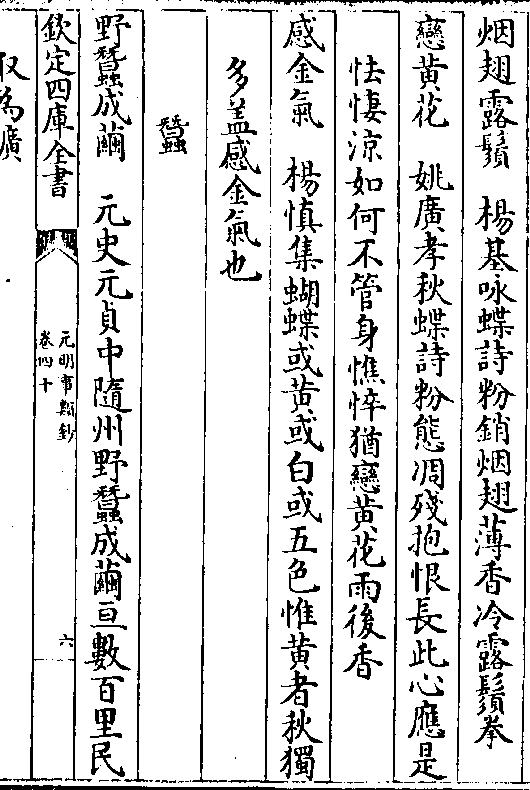 烟翅露鬚　楊基咏蝶詩粉銷烟翅薄香冷露鬚拳
戀黄花　姚廣孝秋蝶詩粉態凋殘抱恨長此心應是
怯悽涼如何不管身憔悴猶戀黄花雨後香
感金氣　楊慎集蝴蝶或黄或白或五色惟黄者秋獨
多盖感金氣也
蠶
野蠶成繭　元史元貞中隨州野蠶成繭亘數百里民
欽定四庫全書
元明事類鈔
卷四十
六
取為纊